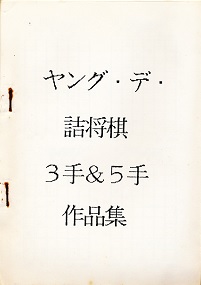 ヤング・デ・
詰将棋
３手＆５手
作品集